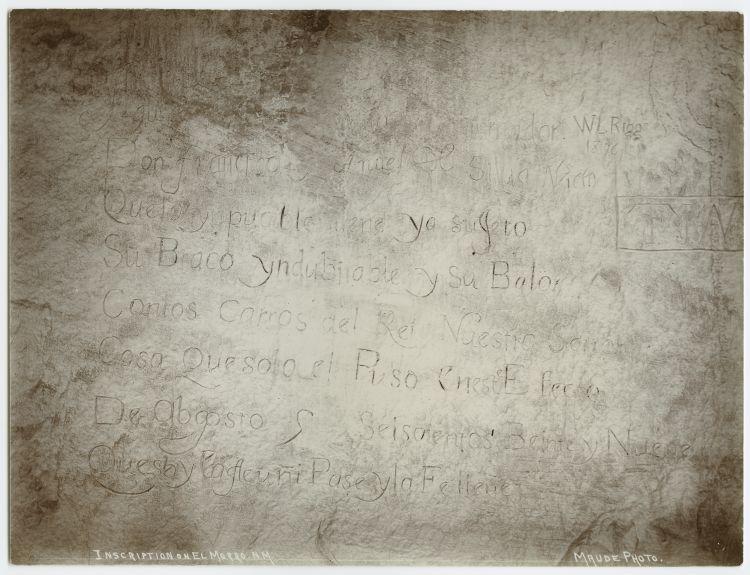 nador. W L Rigg
Don francisco manuel de Silva Nieto
Que lo ynpucible tiene ya sujeto
Su Braco yndubitable y Su Balor
Con los Carros del Rei Nuestro Senor
Cosa Que solo el Puso
De Abgosto Seiscientos Beinte y Nueve
Pase y la Fe lleve
INSCRIPTION ON EL MORRO. N.M.
MAUDE PHOTO.